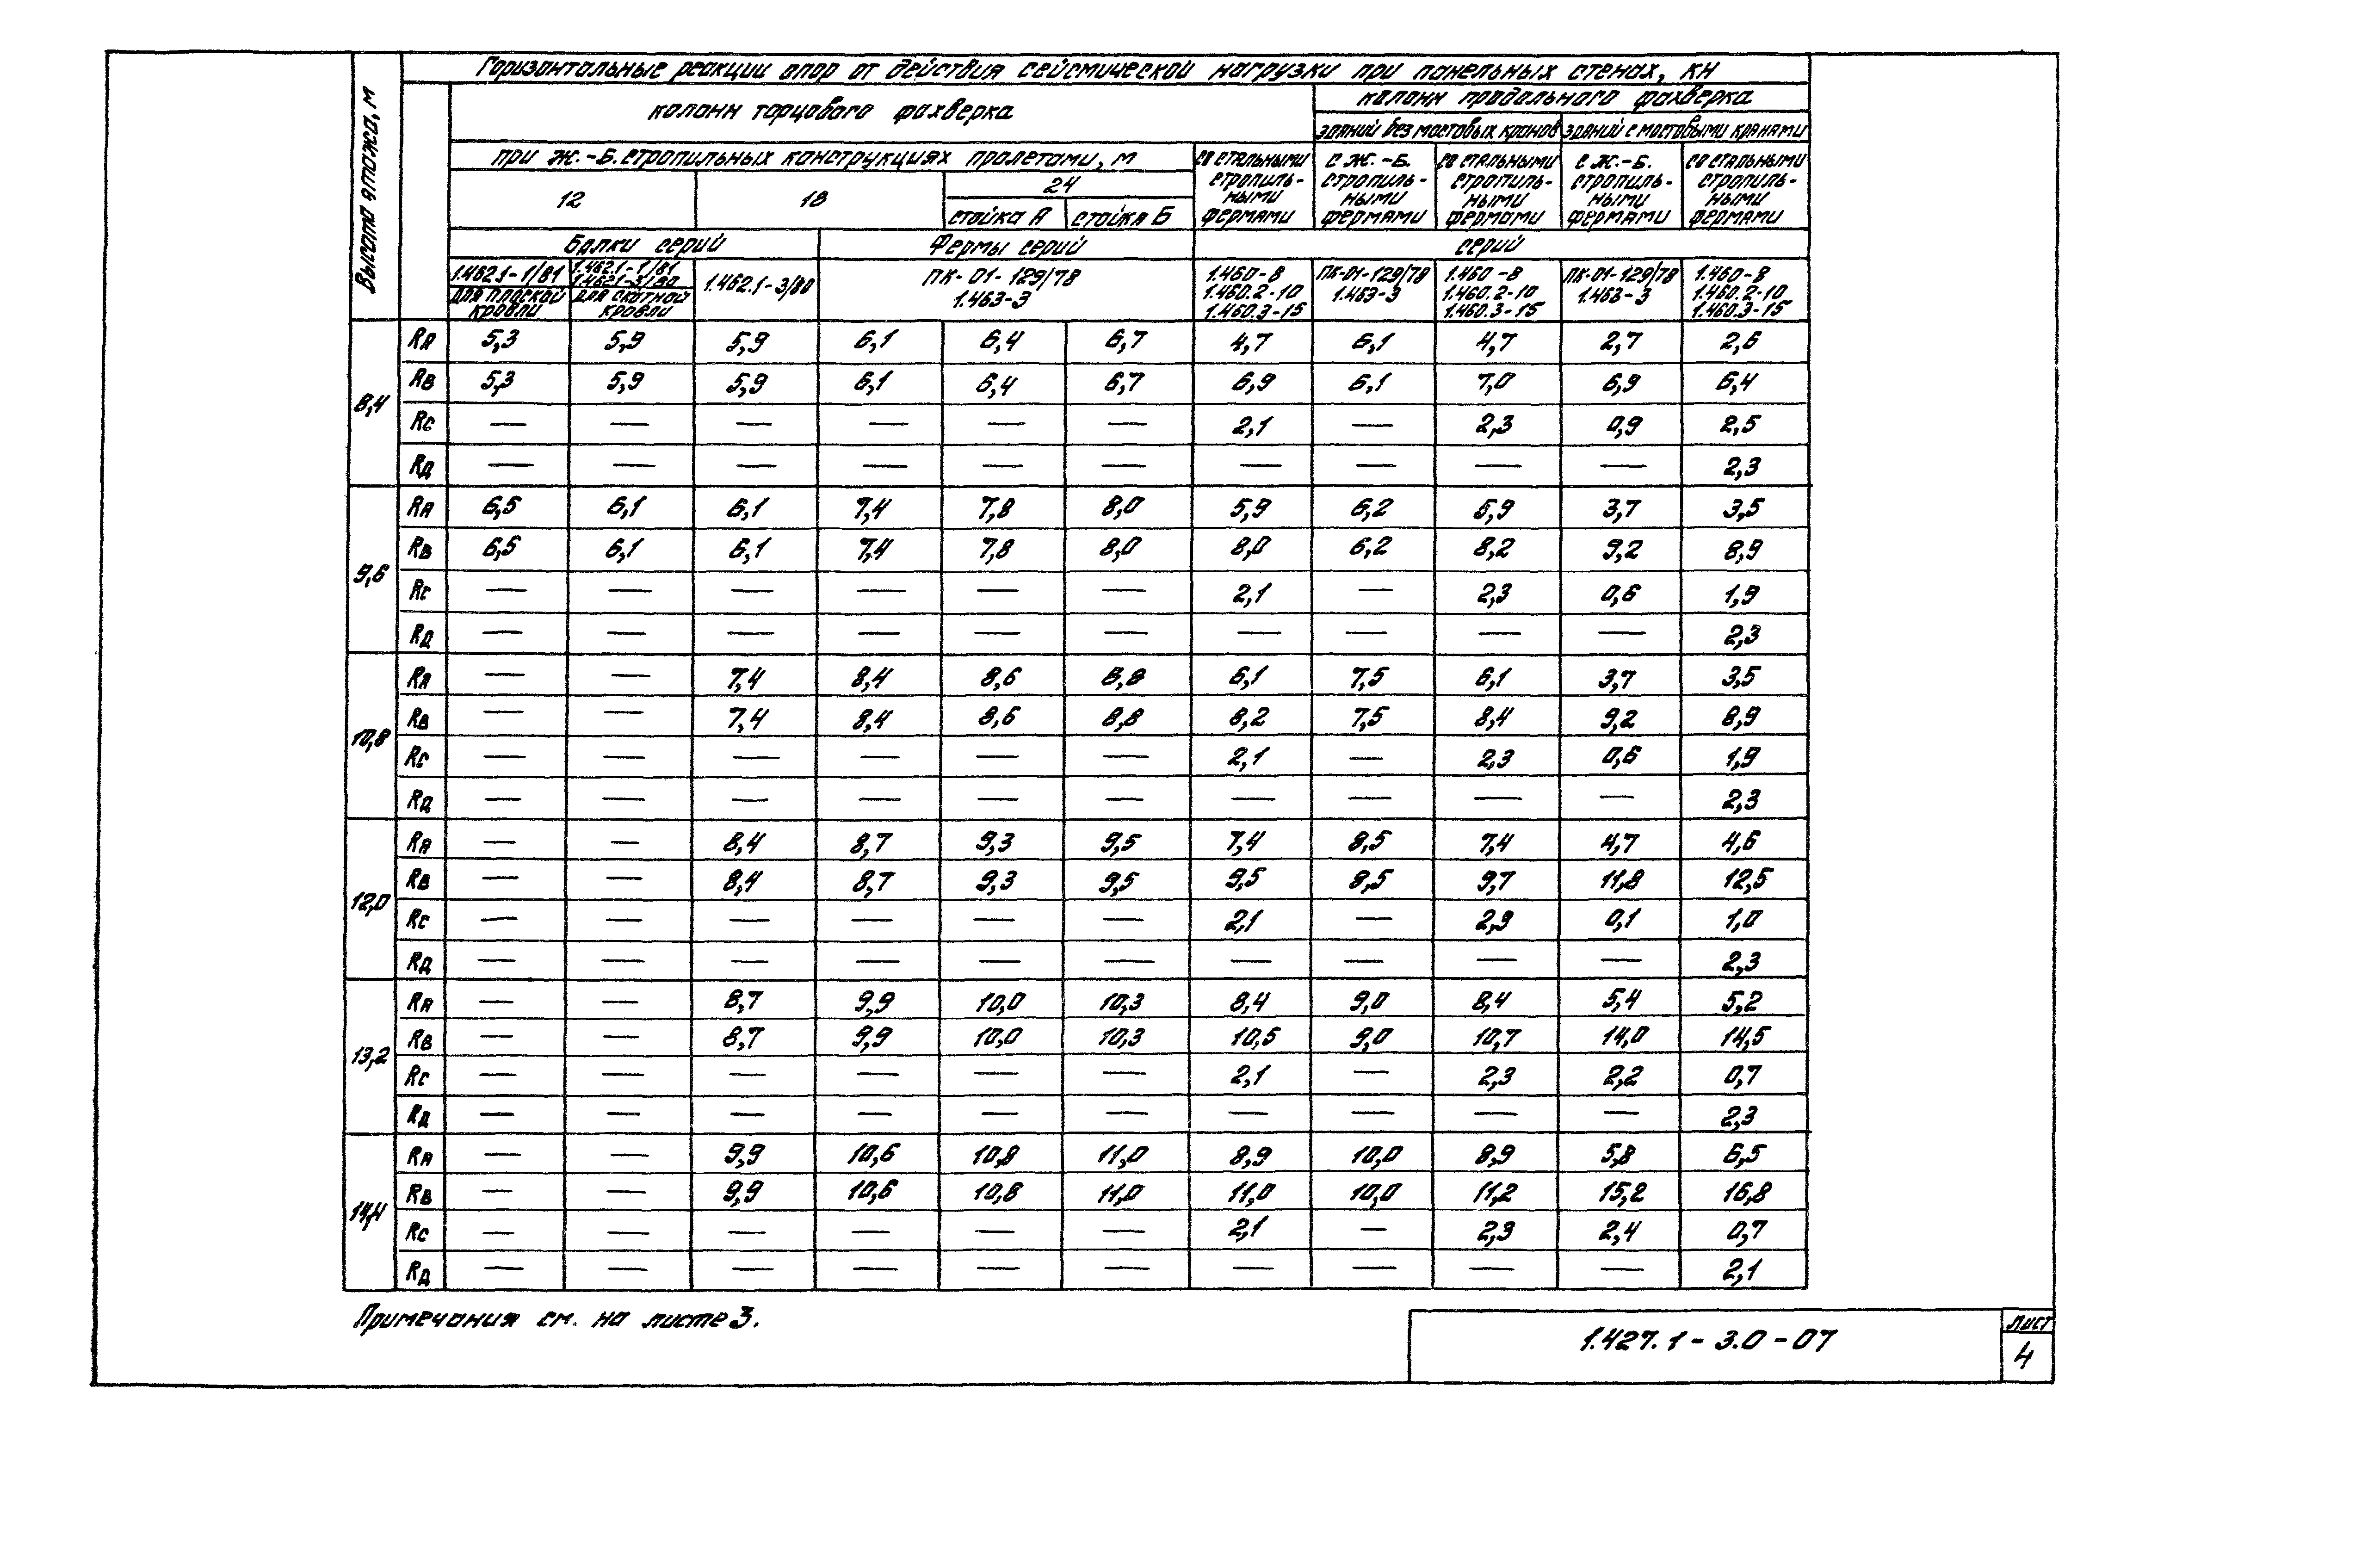 Горизонтальные реакции опор от действия сейсмической нагрузки при панельных стенах, кН
Высота этажа, м
колонн торцового фахверка
колонн продольного фахверка
зданий без мостовых кранов
зданий с мостовыми кранами
при ж.-б. стропильных конструкциях пролетами, м
со стальными стропиль-ными фермами
с ж.-б. стропиль-ными фермами
со стальными стропиль-ными фермами
с ж.-б. стропиль-ными фермами
со стальными стропиль-ными фермами
12
18
24
стойка А
стойка Б
Балки серий
Фермы серий
серий
1.462.1-1/81
для плоской кровли
1.462.1-1/81
1.462.1-3/80
для скатной кровли
1.462.1-3/80
ПК-01-129/78
1.463-3
1.460-8
1.460.2-10
1.460.3-15
ПК-01-129/78
1.463-3
1.460-8
1.460.2-10
1.460.3-15
ПК-01-129/78
1.463-3
1.460-8
1.460.2-10
1.460.3-15
8,4
RА 5,3 5,9 5,9 6,1 6,4 6,7 4,7 6,1 4,7 2,7 2,6
RВ 5,3 5,9 5,9 6,1 6,4 6,7 6,9 6,1 7,0 6,9 6,4
RС — — — — — — 2,1 — 2,3 0,9 2,5
RД — — — — — — — — — — 2,3
9,6
RА 6,5 6,1 6,1 7,4 7,8 8,0 5,9 6,2 5,9 3,7 3,5
RВ 6,5 6,1 6,1 7,4 7,8 8,0 8,0 6,2 8,2 9,2 8,9
RС — — — — — — 2,1 — 2,3 0,6 1,9
RД — — — — — — — — — — 2,3
10,8
RА — — 7,4 8,4 8,6 8,8 6,1 7,5 6,1 3,7 3,5
RВ — — 7,4 8,4 8,6 8,8 8,2 7,5 8,4 9,2 8,9
RС — — — — — — 2,1 — 2,3 0,6 1,9
RД — — — — — — — — — — 2,3
12,0
RА — — 8,4 8,7 9,3 9,5 7,4 8,5 7,4 4,7 4,6
RВ — — 8,4 8,7 9,3 9,5 9,5 8,5 9,7 11,8 12,5
RС — — — — — — 2,1 — 2,3 0,1 1,0
RД — — — — — — — — — — 2,3
13,2
RА — — 8,7 9,9 10,0 10,3 8,4 9,0 8,4 5,4 5,2
RВ — — 8,7 9,9 10,0 10,3 10,5 9,0 10,7 14,0 14,5
RС — — — — — — 2,1 — 2,3 2,2 0,7
RД — — — — — — — — — — 2,3
14,4
RА — — 9,9 10,6 10,8 11,0 8,9 10,0 8,9 5,8 6,5
RВ — — 9,9 10,6 10,8 11,0 11,0 10,0 11,2 15,2 16,8
RС — — — — — — 2,1 — 2,3 2,4 0,7
RД — — — — — — — — — — 2,1
Примечания см. на листе 3.
1.427.1-3.0-07
Лист
4